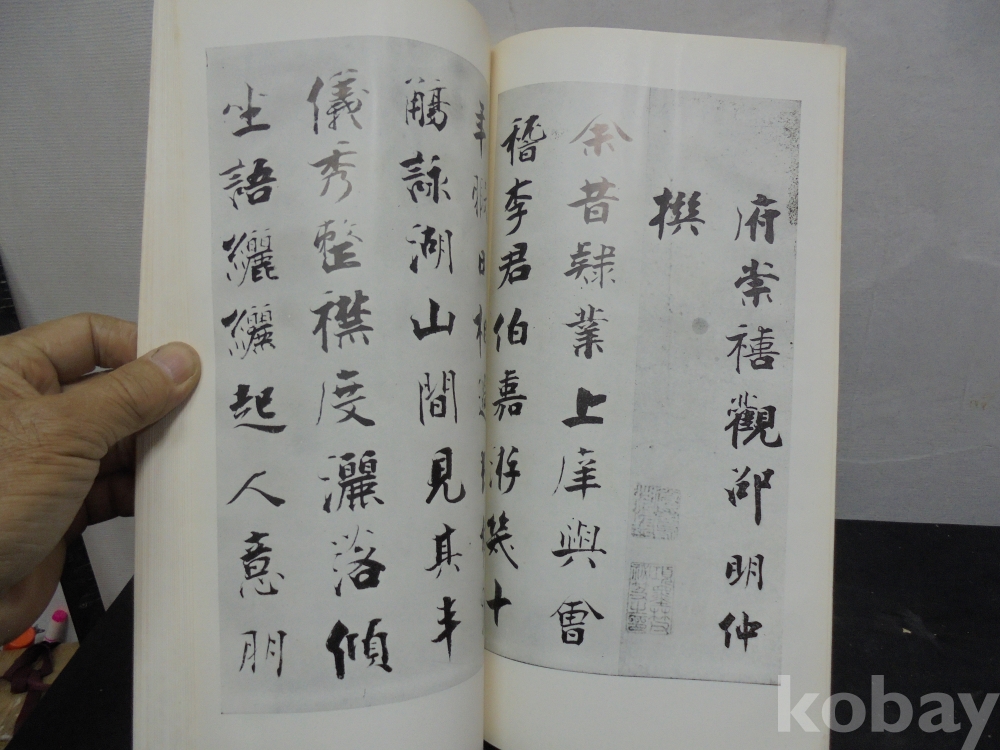 府崇禧觀邵明仲
撰
余昔隸業上庠與會
稽李君伯嘉游幾十
年
觴詠湖山間見其丰
儀秀整襟度灑落傾
坐語纚纚起人意朋
kobay